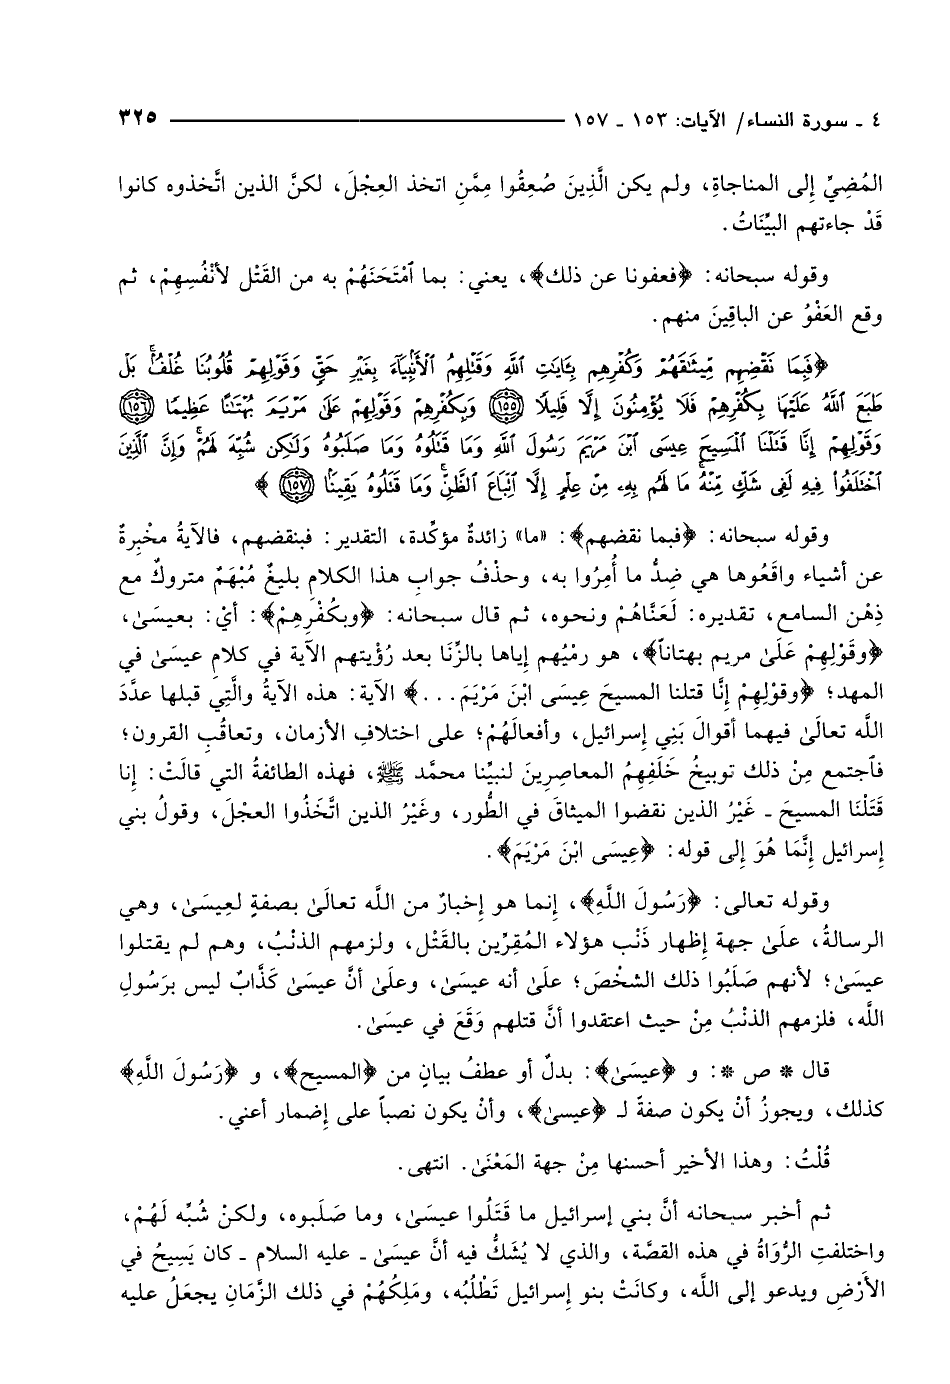 ٤ ـ سورة النساء/ الآيات: ١٥٣ ـ ١٥٧ ــــــــــــ ٣٢٥
المُضِيِّ إِلى المناجاةِ، ولم يكن الَّذِينَ صُعِقُوا مِمَّنِ اتخذ العِجْلَ، لكنَّ الذين اتَّخذوه كانوا
قَدْ جاءتهم البيِّنَاتُ.
وقوله سبحانه: ﴿فعفونا عن ذلك﴾، يعني: بما ٱمْتَحَنَهُمْ به من القَتْل لأنْفُسِهِمْ، ثم
وقع العَفْوُ عن الباقِينَ منهم.
﴿فَبِمَا نَقْضِهِم مِّيثَٰقَهُمْ وَكُفْرِهِم بِـَٔايَٰتِ ٱللَّهِ وَقَتْلِهِمُ ٱلْأَنۢبِيَآءَ بِغَيْرِ حَقٍّ وَقَوْلِهِمْ قُلُوبُنَا غُلْفٌۢ ۚ بَلْ
طَبَعَ ٱللَّهُ عَلَيْهَا بِكُفْرِهِمْ فَلَا يُؤْمِنُونَ إِلَّا قَلِيلًا ﴿١٥٥﴾ وَبِكُفْرِهِمْ وَقَوْلِهِمْ عَلَىٰ مَرْيَمَ بُهْتَٰنًا عَظِيمًا ﴿١٥٦﴾
وَقَوْلِهِمْ إِنَّا قَتَلْنَا ٱلْمَسِيحَ عِيسَى ٱبْنَ مَرْيَمَ رَسُولَ ٱللَّهِ وَمَا قَتَلُوهُ وَمَا صَلَبُوهُ وَلَٰكِن شُبِّهَ لَهُمْ ۚ وَإِنَّ ٱلَّذِينَ
ٱخْتَلَفُوا۟ فِيهِ لَفِى شَكٍّ مِّنْهُ ۚ مَا لَهُم بِهِۦ مِنْ عِلْمٍ إِلَّا ٱتِّبَاعَ ٱلظَّنِّ ۚ وَمَا قَتَلُوهُ يَقِينًۢا ﴿١٥٧﴾ ﴾
وقوله سبحانه: ﴿فبما نقضهم﴾: «ما» زائدةٌ مؤكِّدة، التقدير: فبنقضهم، فالآيةُ مخْبِرةٌ
عن أشياء واقَعُوها هي ضِدُّ ما أُمِرُوا به، وحذْفُ جوابِ هذا الكلامِ بليغٌ مُبْهَمٌ متروكٌ مع
ذِهْن السامع، تقديره: لَعَنَّاهُمْ ونحوه، ثم قال سبحانه: ﴿وبكُفْرِهِمْ﴾: أيْ: بعيسَىٰ،
﴿وقَوْلِهِمْ عَلَىٰ مريم بهتاناً﴾، هو رميُهم إياها بالزِّنَا بعد رُؤْيتهم الآية في كلامِ عيسَىٰ في
المهد؛ ﴿وقوْلِهِمْ إِنَّا قتلنا المسيحَ عِيسَى ابْنَ مَرْيَمَ...﴾ الآية: هذه الآيةُ والَّتِي قبلها عدَّدَ
اللَّه تعالَىٰ فيهما أقوالَ بَنِي إسرائيل، وأفعالَهُمْ؛ على اختلافِ الأزمان، وتعاقُبِ القرون؛
فٱجتمع مِنْ ذلك توبيخُ خَلَفِهِمُ المعاصِرِينَ لنبيِّنا محمَّد ﷺ، فهذه الطائفةُ التي قالَتْ: إنا
قَتَلْنَا المسيحَ ـ غَيْرُ الذين نقضوا الميثاقَ في الطُّور، وغَيْرُ الذين اتَّخَذُوا العجْلَ، وقولُ بني
إسرائيل إنَّمَا هُوَ إلى قوله: ﴿عِيسَى ابْنَ مَرْيَمَ﴾.
وقوله تعالى: ﴿رَسُولَ اللَّهِ﴾، إنما هو إخبارٌ من اللَّه تعالَىٰ بصفةٍ لعِيسَىٰ، وهي
الرسالةُ، علَىٰ جهة إظهار ذَنْب هؤلاء المُقِرِّين بالقَتْل، ولزمهم الذنْبُ، وهم لم يقتلوا
عيسَىٰ؛ لأنهم صَلَبُوا ذلك الشخْصَ؛ علَىٰ أنه عيسَىٰ، وعلَىٰ أنَّ عيسَىٰ كَذَّابٌ ليس برَسُولِ
اللَّه، فلزمهم الذنْبُ مِنْ حيث اعتقدوا أنَّ قتلهم وَقَعَ في عيسَىٰ.
قال * ص *: و ﴿عيسَىٰ﴾: بدلٌ أو عطفُ بيانٍ من ﴿المسيح﴾، و ﴿رَسُولَ اللَّهِ﴾
كذلك، ويجوزُ أنْ يكون صفةً لـ ﴿عيسىٰ﴾، وأنْ يكون نصباً على إضمار أعني.
قُلْتُ: وهذا الأخير أحسنها مِنْ جهة المَعْنَىٰ. انتهى.
ثم أخبر سبحانه أنَّ بني إسرائيل ما قَتَلُوا عيسَىٰ، وما صَلَبوه، ولكنْ شُبِّه لَهُمْ،
واختلفتِ الرُّوَاةُ في هذه القصَّة، والذي لا يُشَكُّ فيه أنَّ عيسَىٰ ـ عليه السلام ـ كان يَسِيحُ في
الأَرْضِ ويدعو إلى اللَّه، وكانَتْ بنو إسرائيل تَطْلُبُه، ومَلِكُهُمْ في ذلك الزَّمَانِ يجعَلُ عليه